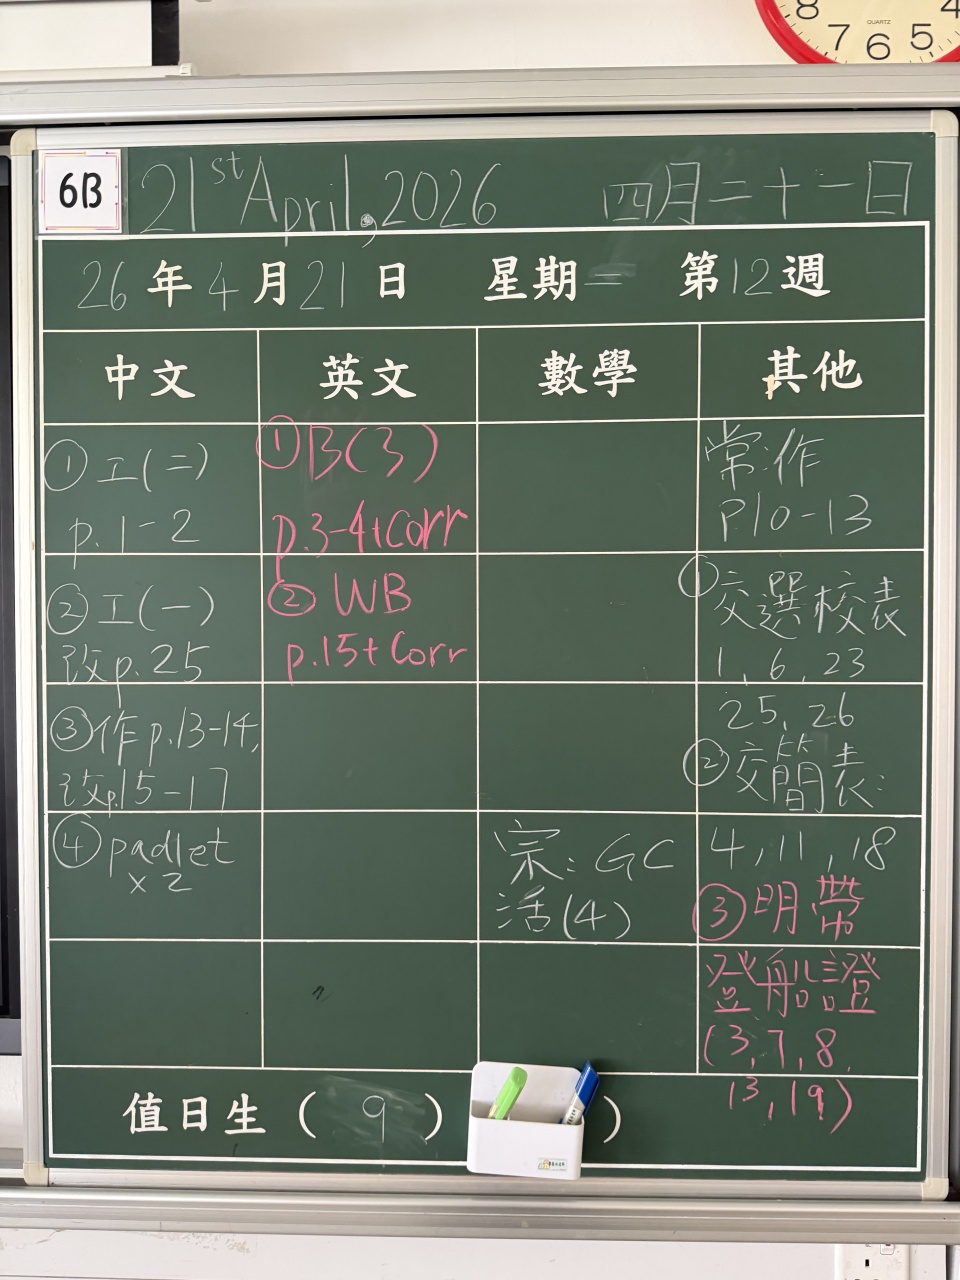 8 4
7 6 5
QUARTZ
6B
21st April, 2026 四月二十一日
26年4月21日 星期二 第12週
中文 英文 數學 其他
①工(二)
p.1-2
②工(一)
改p.25
③作p.13-14,
改p.15-17
④padlet
x2
①B(3)
p.3-4+Corr
②WB
p.15+Corr
宗:GC
活(4)
常:作
P.10-13
①交選校表
1,6,23
25,26
②交簡表:
4,11,18
③明帶
登船證
(3,7,8,
13,19)
值日生(9) )